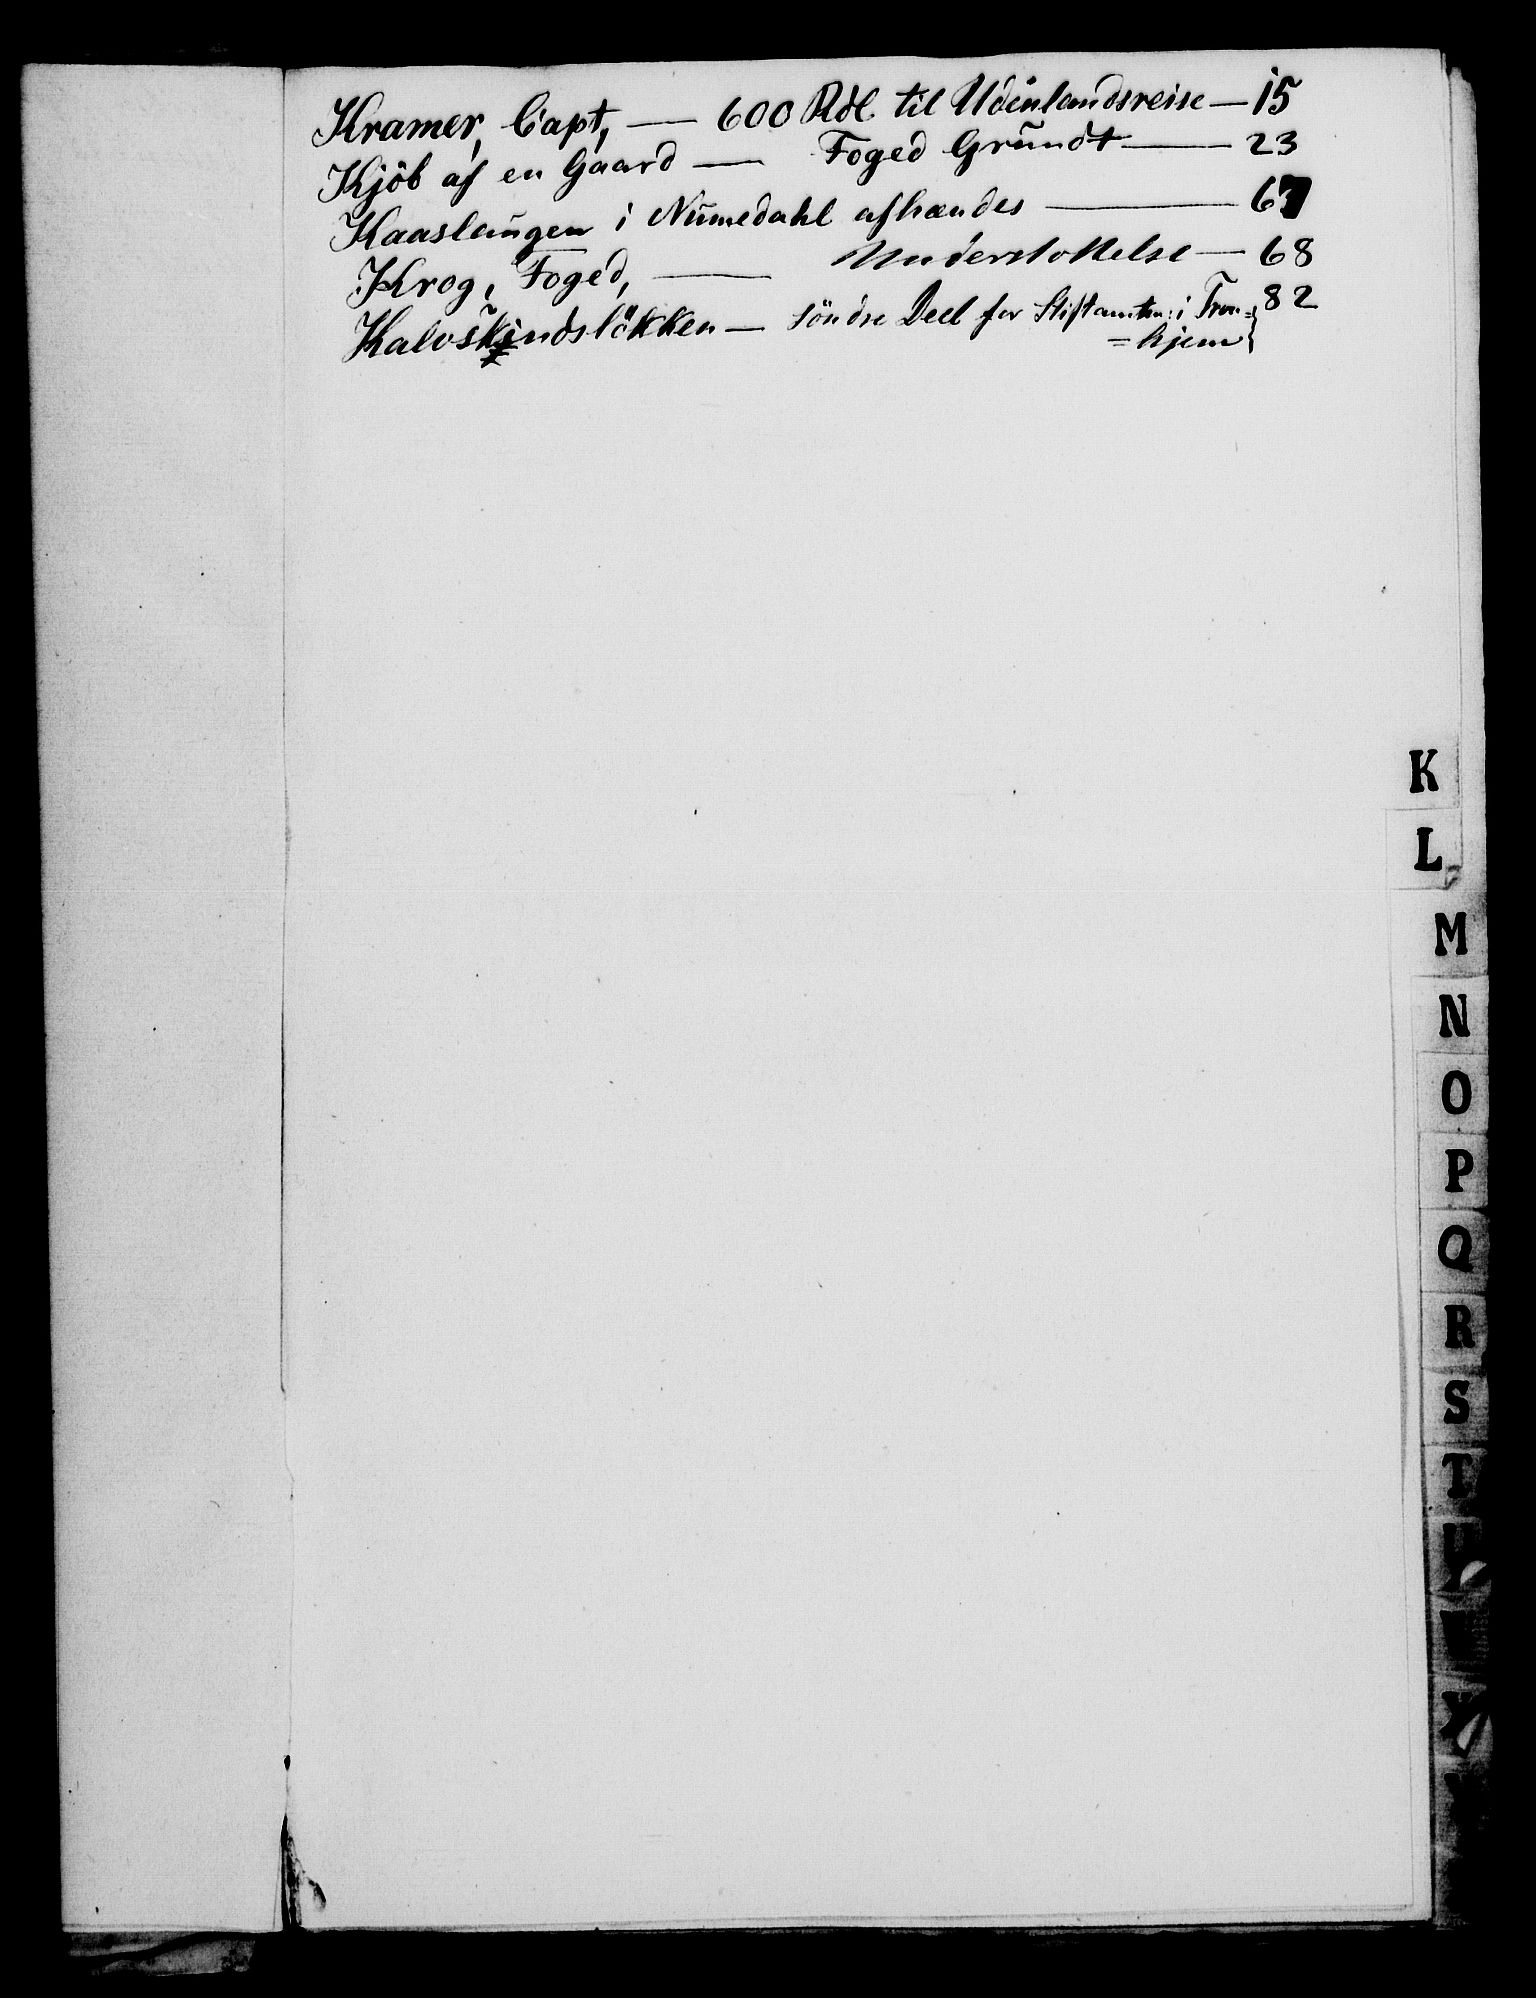 Kramer, Capt, — 600 Rdl til Udenlandsreise — 15
Kjöb af en Gaard — Foged Grundt — 23
Kaaslaugen i Numedahl afhændes — 67
Krog, Foged, — Understottelse — 68
Kalvskindslökken — söndre Deel for Stiftamtm: i Tron= 82
=hjem
K
L
M
N
O
P
Q
R
S
T